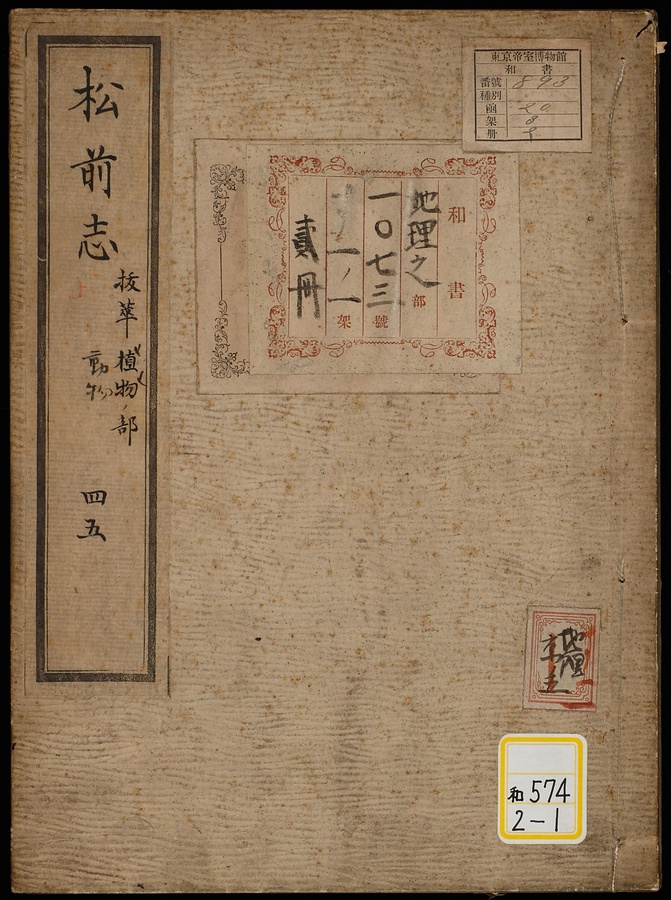 松前志
抜華 植物ノ部
動物
四五
東京帝室博物館
和書
番號 893
種別
函 20
架
册
和書
地理之部
一〇七三號
一ノ一架
貳冊
地理
和574
2-1